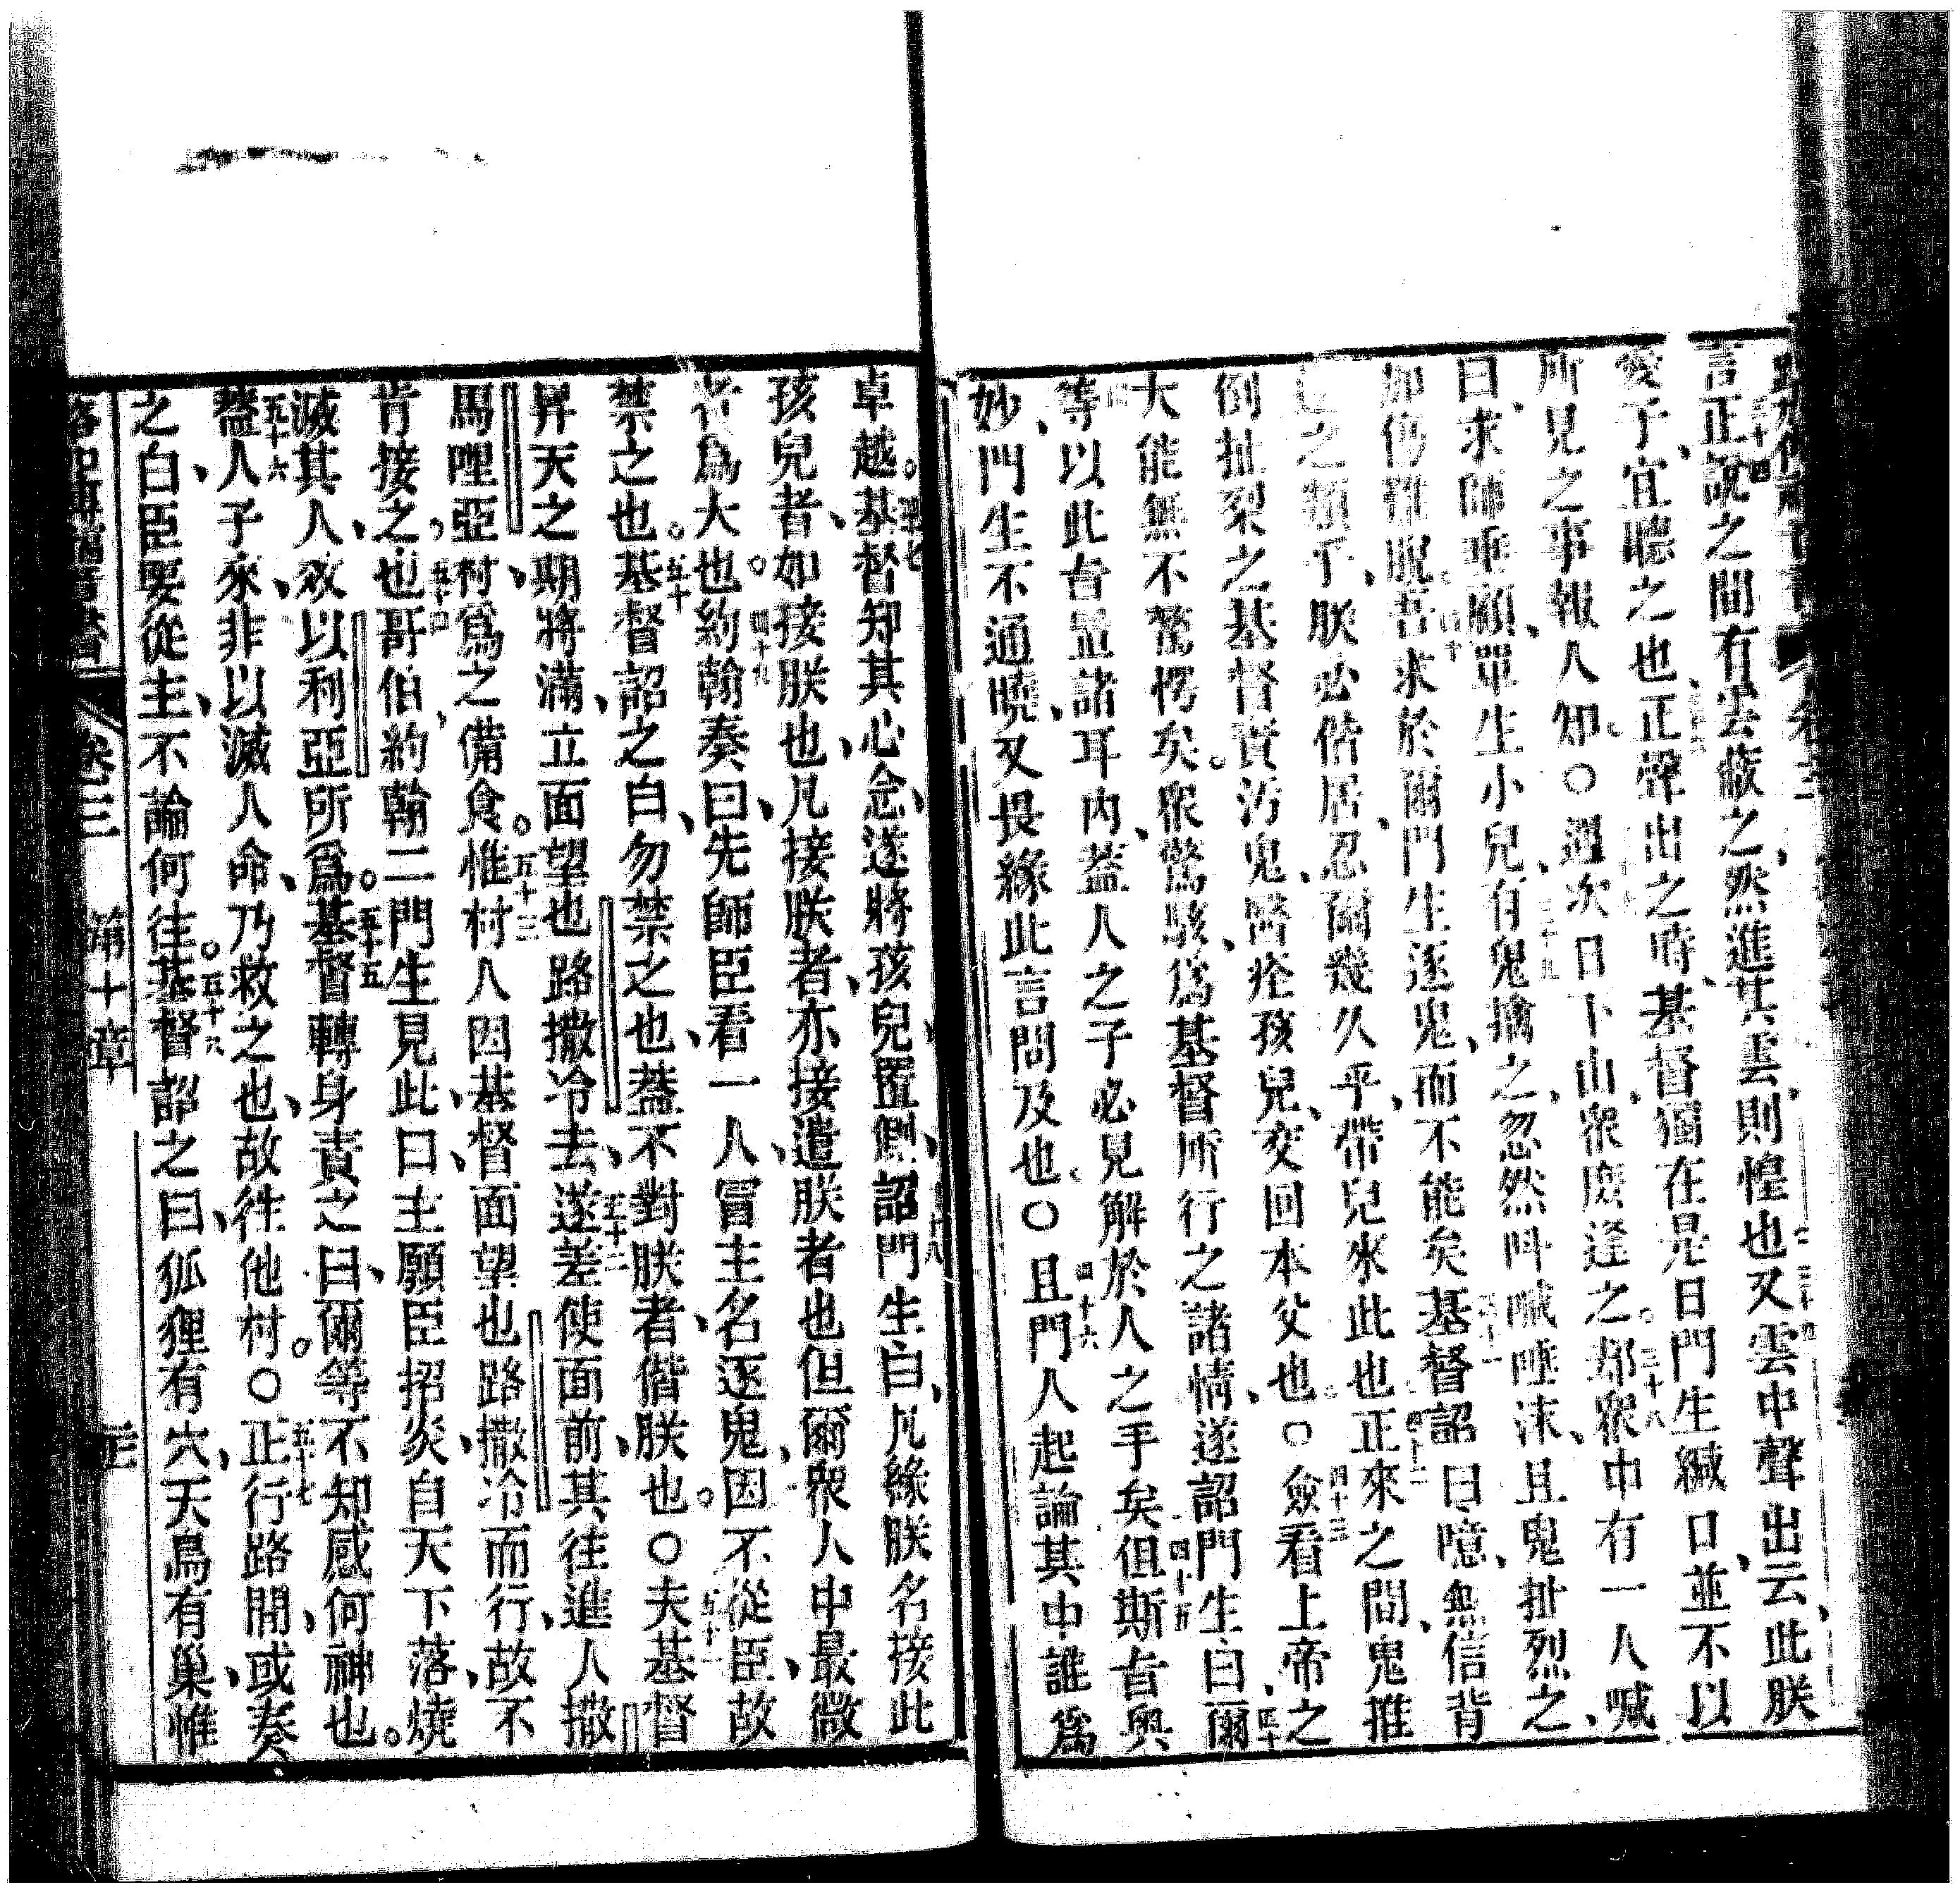 言正說之間有雲蔽之然進其雲則惶也又雲中聲出云此朕
愛子宜聽之也正聲出之時基督獨在是日門生緘口並不以
所見之事報人知〇過次日下山眾庶逢之却眾中有一人喊
曰求師垂顧單生小兒有鬼擒之忽然呌喊唾沫且鬼扯烈之
加傷難脫吾求於爾門生逐鬼而不能矣基督詔曰噫無信背
之類乎朕必偕居忍爾幾久乎帶兒來此也正來之間鬼推
倒扯裂之基督責汚鬼醫痊孩兒交回本父也〇僉看上帝之
大能無不驚愕矣眾驚駭為基督所行之諸情遂詔門生曰爾
等以此旨置諸耳內蓋人之子必見解於人之手矣但斯旨奥
妙門生不通曉又畏緣此言問及也〇且門人起論其中誰為
卓越基督知其心念遂將孩兒置側詔門生曰凡緣朕名接此
孩兒者如接朕也凡接朕者亦接遣朕者也但爾眾人中最微
者為大也約翰奏曰先師臣看一人冒主名逐鬼因不從臣故
禁之也基督詔之曰勿禁之也蓋不對朕者偕朕也〇夫基督
昇天之期將滿立面望也路撒冷去遂差使面前其往進人撒
馬哩亞村為之備食惟村人因基督面望也路撒冷而行故不
肯接之也哥伯約翰二門生見此曰主願臣招炎自天下落燒
滅其人效以利亞所為基督轉身責之曰爾等不知感何神也
蓋人子來非以滅人命乃救之也故往他村〇正行路間或奏
之曰臣要從主不論何往基督詔之曰狐狸有穴天鳥有巢惟
卷三 第十章